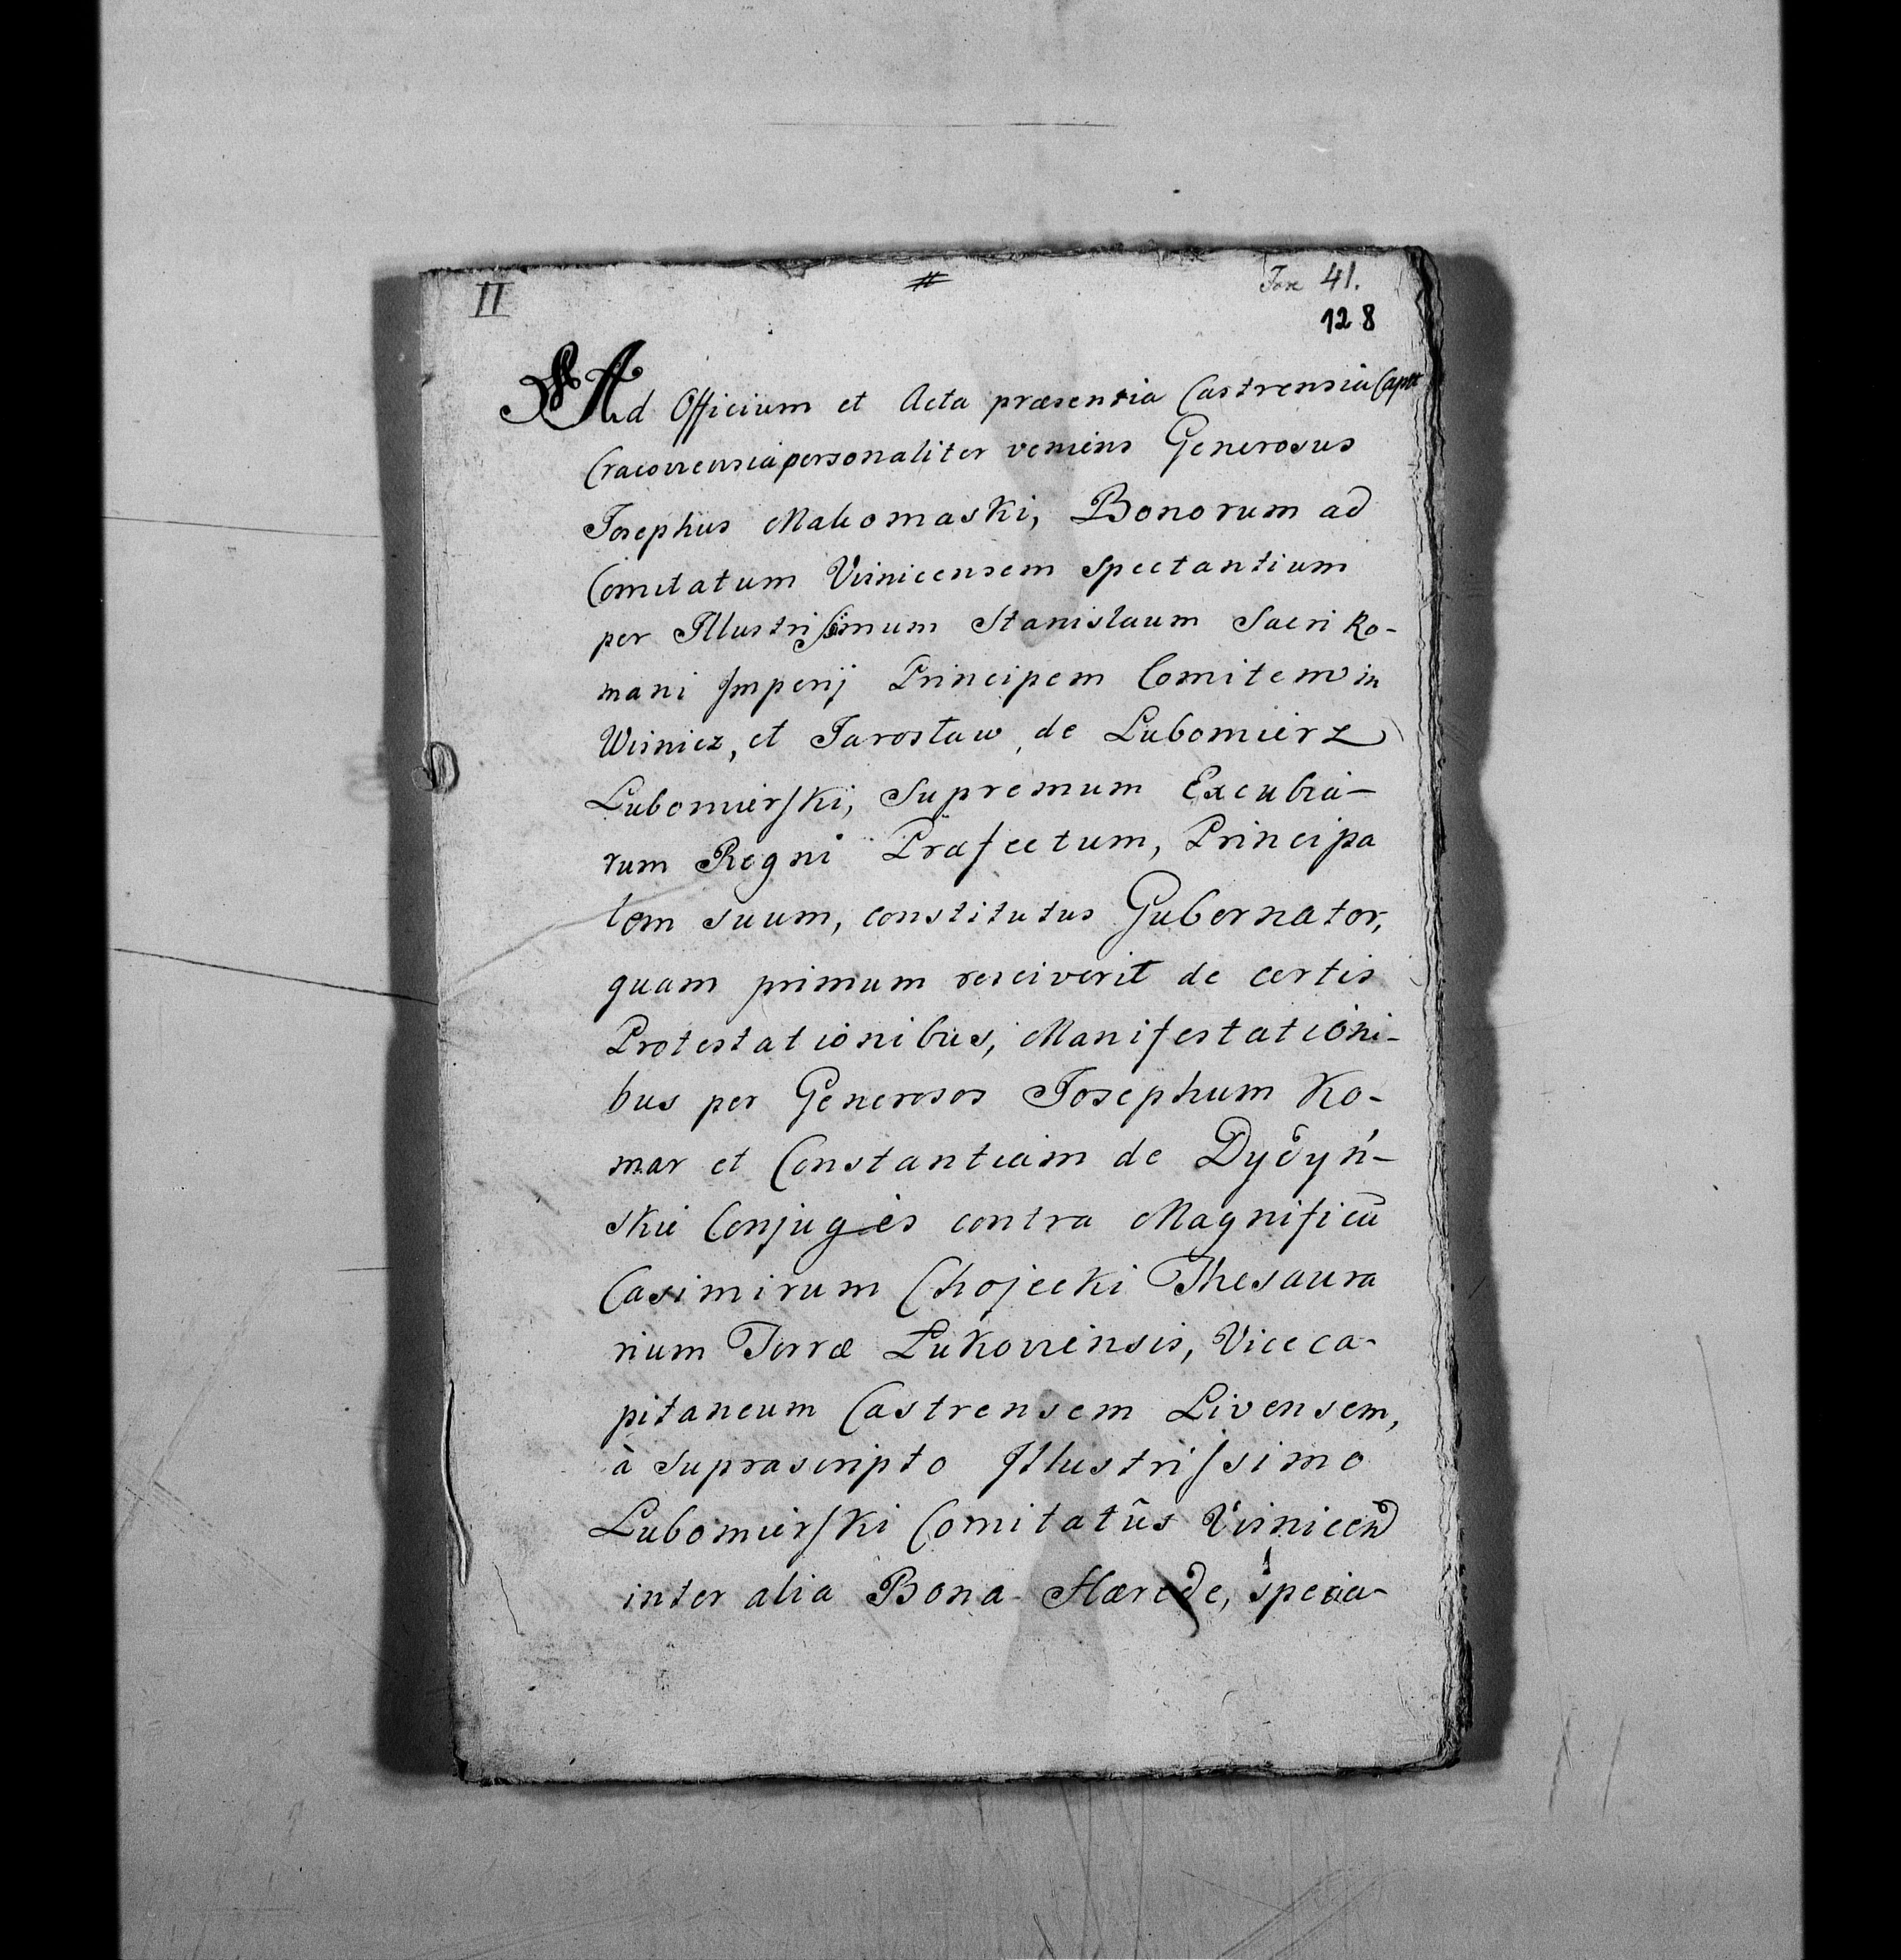 II
#
41.
128
Ad Officium et Acta præsentia Castrensia Capit
Cracoviensia personaliter veniens Generosus
Josephus Malromaski, Bonorum ad
Comitatum Visnicensem spectantium
per Illustrissimum Stanislaum Sacri Ro-
mani Imperij Principem Comitem in
Wisnicz, et Jarosław, de Lubomierz
Lubomierski, Supremum Excubia-
rum Regni Præfectum, Principa
lem suum, constitutus Gubernator,
quam primum resciverit de certis
Protestationibus, Manifestationi-
bus per Generosos Josephum Ko-
mar et Constantiam de Dydyń-
skie Conjuges contra Magnificū
Casimirum Chojecki Thesaura
rium Terræ Łukoviensis, Viceca-
pitaneum Castrensem Livensem,
à suprascripto Illustrissimo
Lubomierski Comitatûs Visnicen
inter alia Bona Hærede, specia-